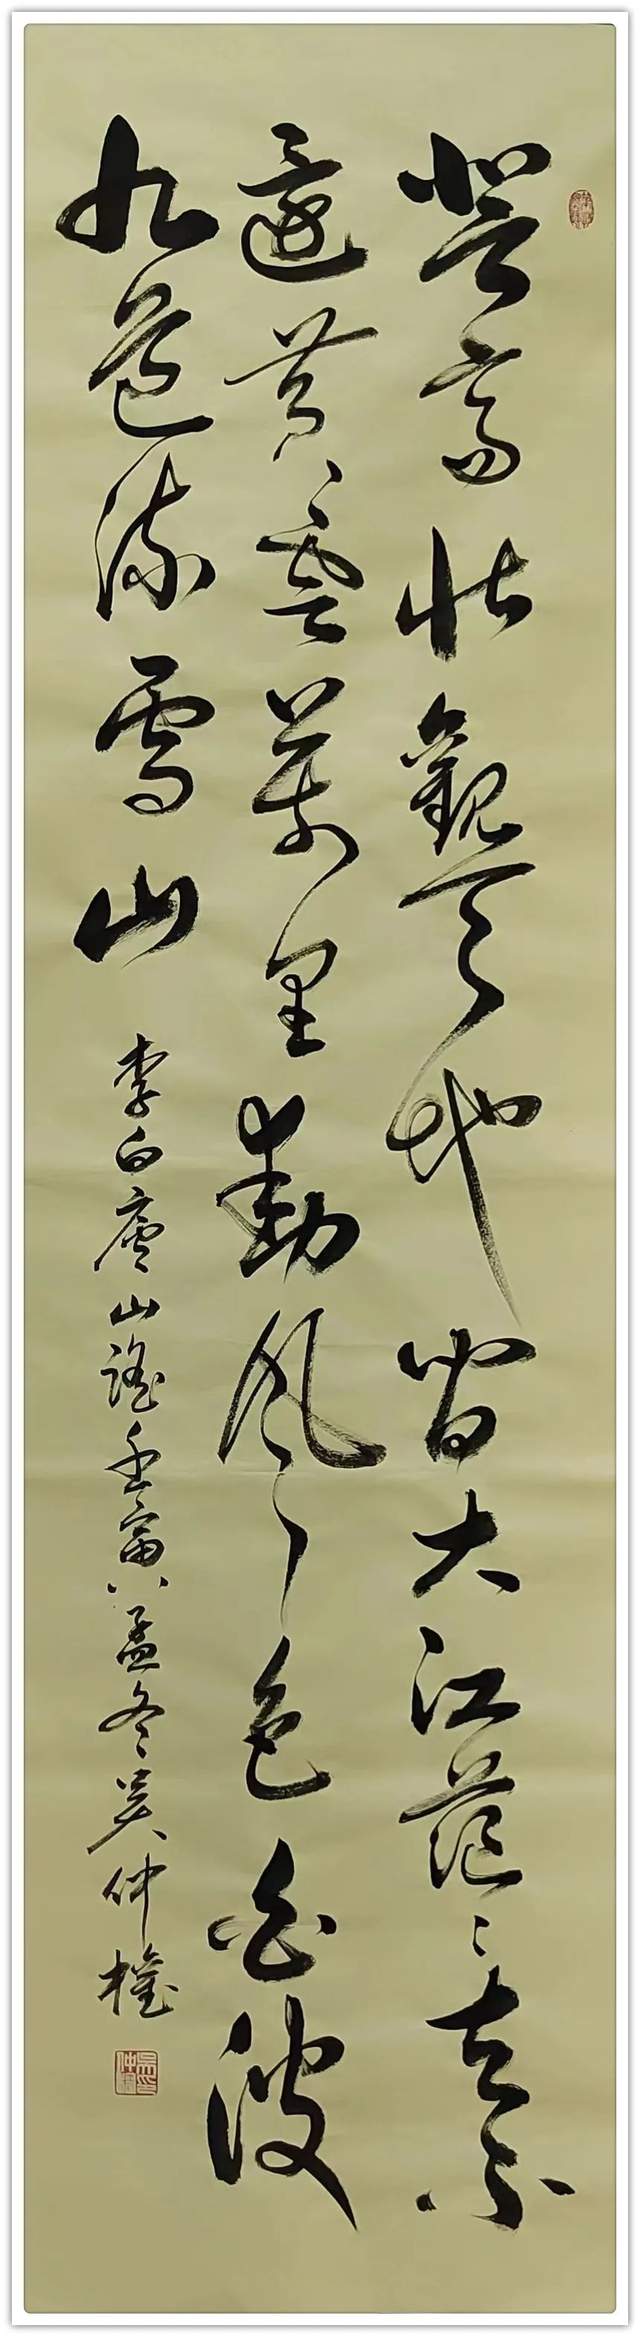 登高壮觀天地間大江茫〻去不
還黄雲萬里動風色白波
九道流雪山
李白廬山謡壬寅八孟冬吴仲權